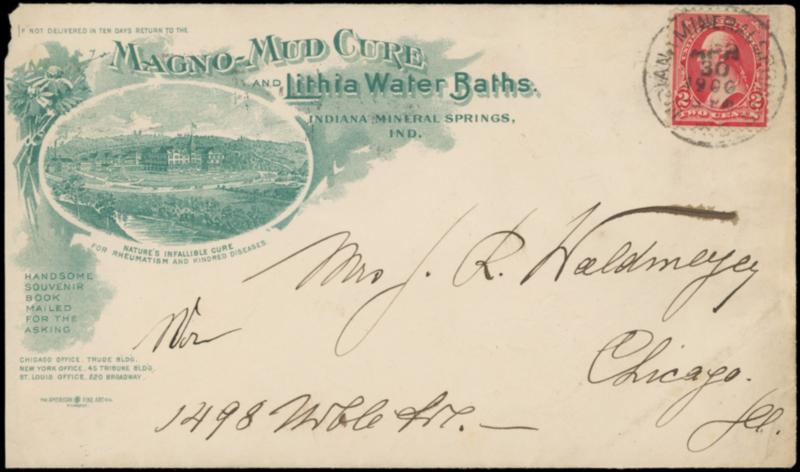 IF NOT DELIVERED IN TEN DAYS RETURN TO THE
MAGNO-MUD CURE
AND Lithia Water Baths.
INDIANA MINERAL SPRINGS,
IND.
NATURE'S INFALLIBLE CURE
FOR RHEUMATISM AND KINDRED DISEASES.
HANDSOME
SOUVENIR
BOOK
MAILED
FOR THE
ASKING
CHICAGO OFFICE, TRUDE BLDG.
NEW YORK OFFICE, 45 TRIBUNE BLDG.
ST. LOUIS OFFICE, 220 BROADWAY.
THE AMERICAN FINE ART CO.
INDIANA MINERAL
30
1900
2 2
TWO CENTS
Mrs J. R. Waldmeyer
Chicago.
1498 Noble Ave.
Ill.